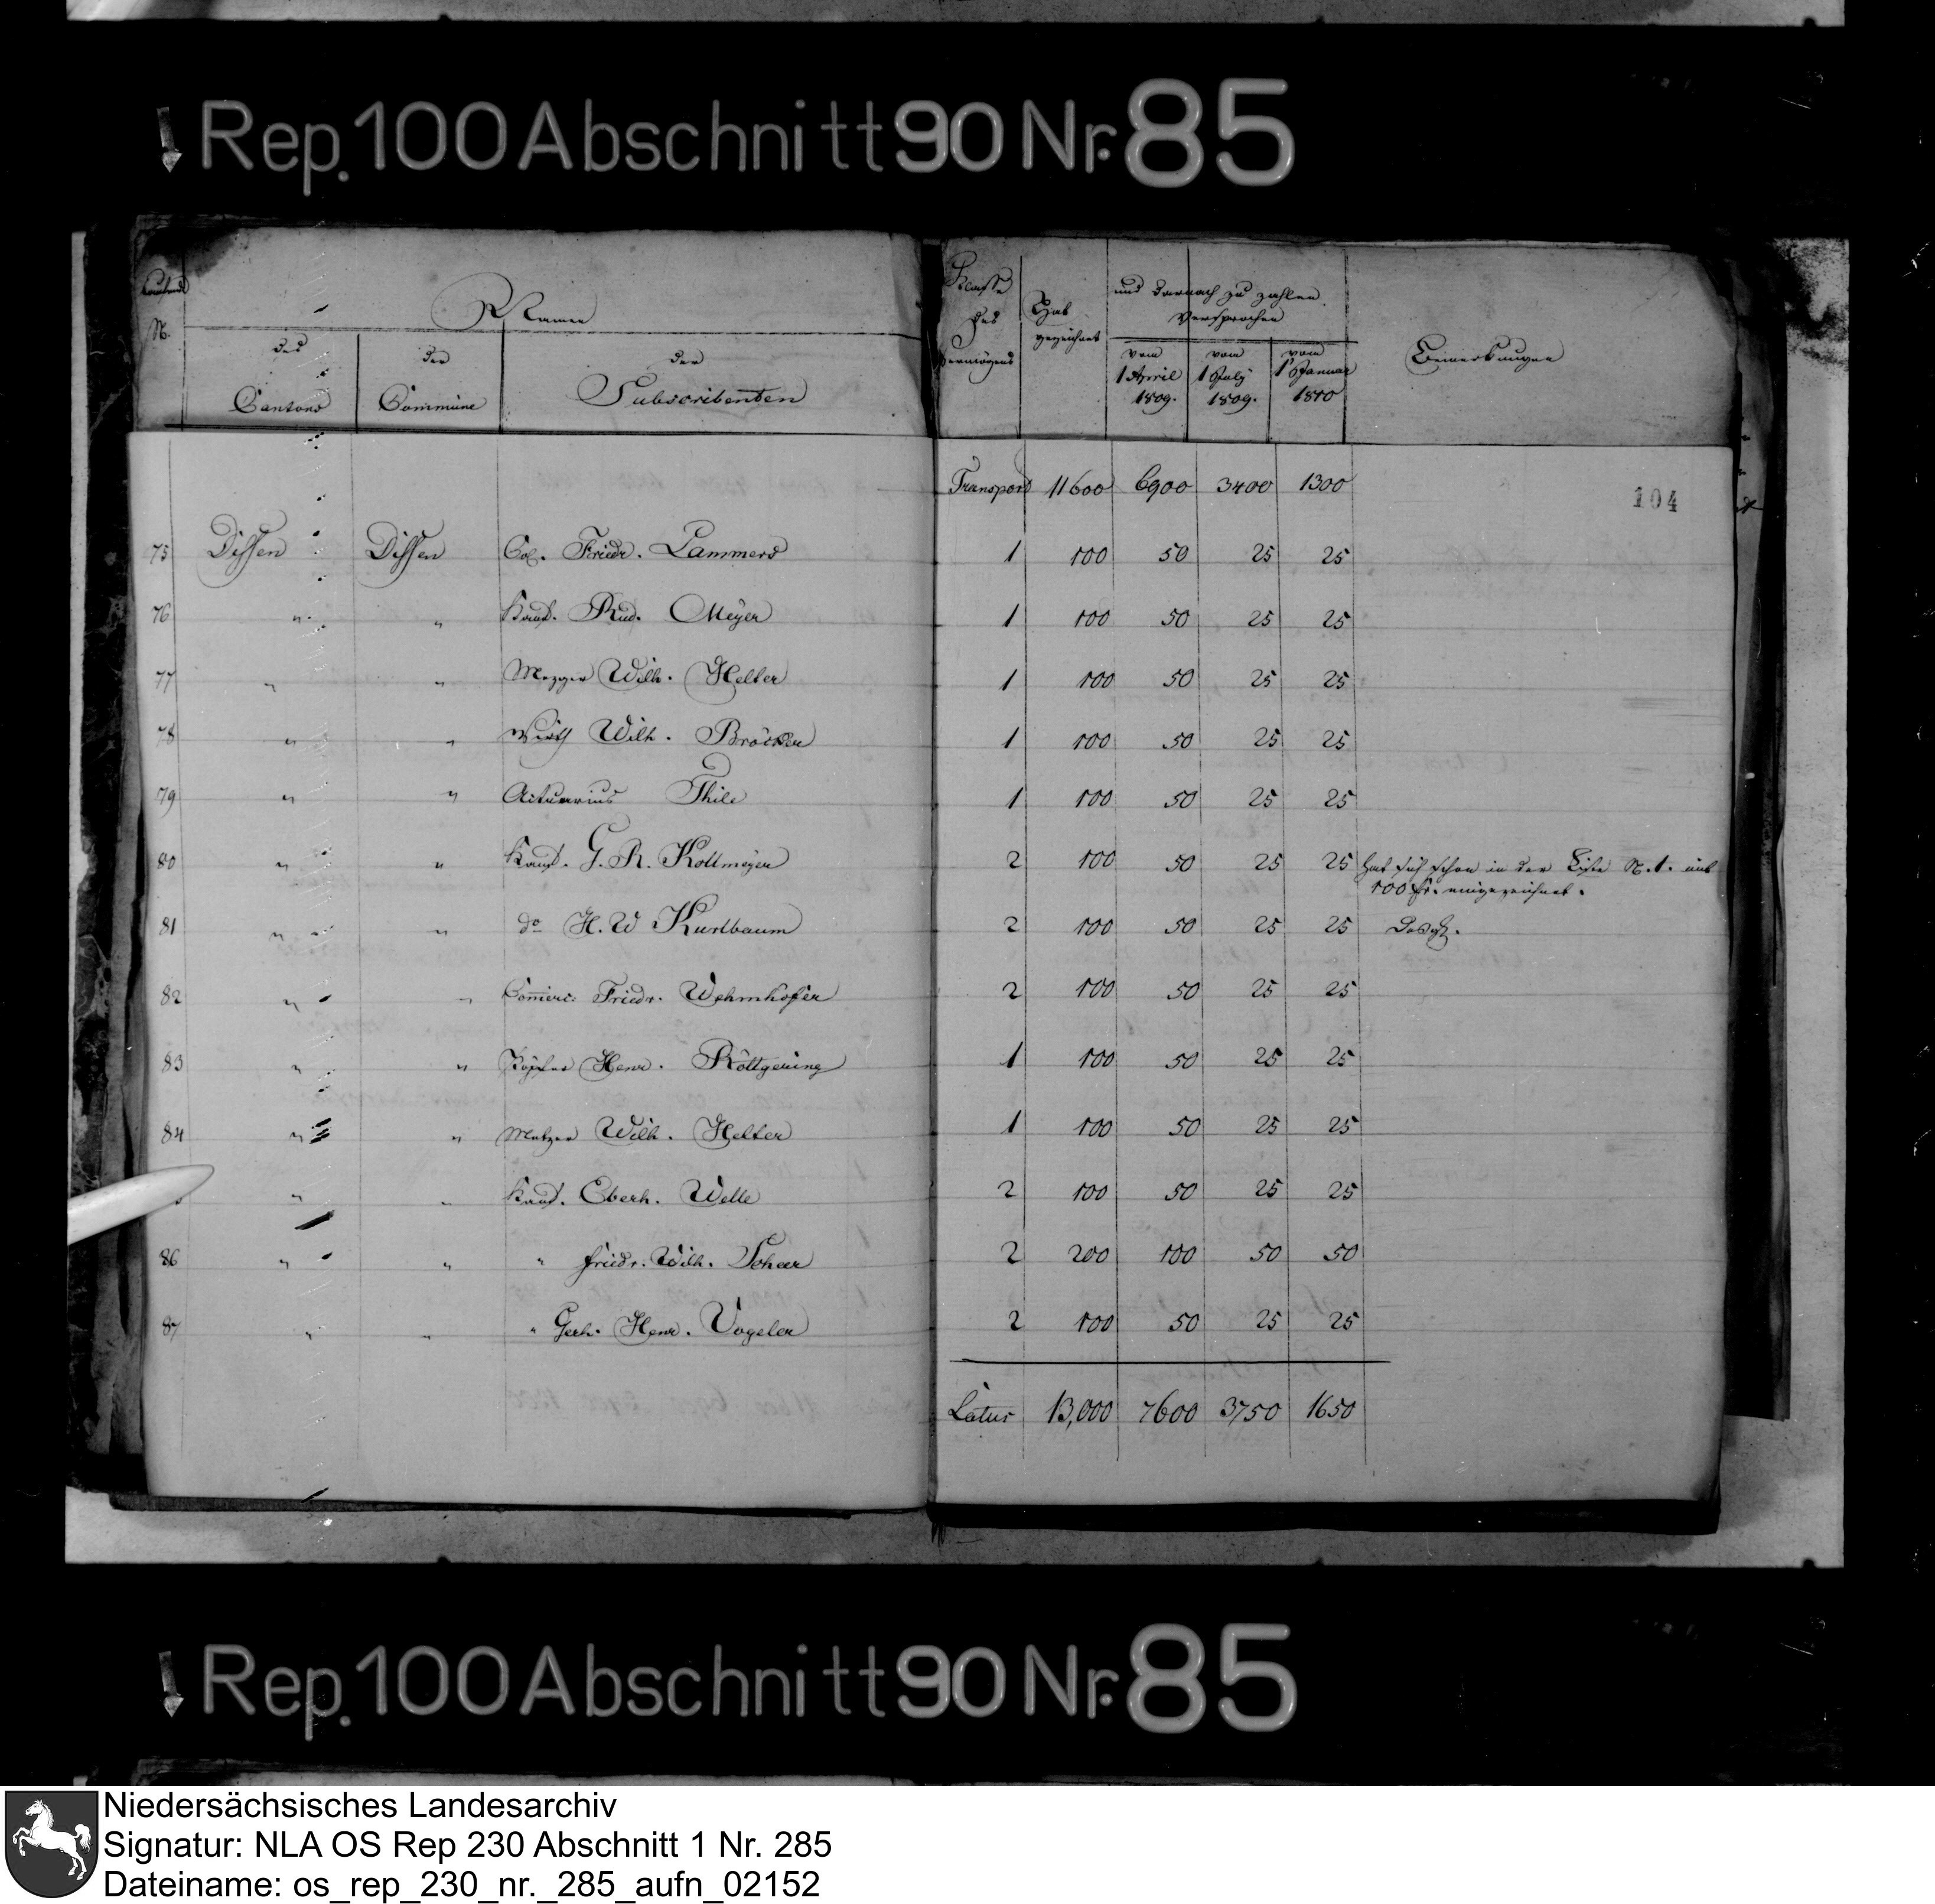 Rep. 100 Abschnitt 90 Nr. 85
Laufende
N.
Namen
des
Cantons
der
Commüne
der
Subscribenten
Klasse
des
Vermögens
Hat
gezeichnet
und darnach zu zahlen
versprochen
vom
1 April
1809.
vom
1 July
1809.
vom
1 Januar
1810
Bemerkungen
Transport 11600 6900 3400 1300
104
75 Dissen Dissen Col. Friedr. Lammers 1 100 50 25 25
76 " " Kauf. Rud. Meÿer 1 100 50 25 25
77 " " Mezger Wilh. Helter 1 100 50 25 25
78 " " Wirth Wilh. Bröcker 1 100 50 25 25
79 " " Actuarius Thile 1 100 50 25 25
80 " " Kauf. G. R. Kollmeÿer 2 100 50 25 25 hat sich schon in der Liste N. 1. mit
100 fr. eingezeichnet.
81 " " do H. W Kurlbaum 2 100 50 25 25 Desgl.
82 " " Com̄erc: Friedr. Wehmhofer 2 100 50 25 25
83 " " Henr. Röttgering 1 100 50 25 25
84 " " Metzger Wilh. Helter 1 100 50 25 25
" " Kauf. Eberh. Welle 2 100 50 25 25
86 " " " Friedr. Wilh. 2 200 100 50 50
87 " " " Gerh. Henr. Vogeler 2 100 50 25 25
Latus 13,000 7600 3750 1650
Rep. 100 Abschnitt 90 Nr. 85
Niedersächsisches Landesarchiv
Signatur: NLA OS Rep 230 Abschnitt 1 Nr. 285
Dateiname: os_rep_230_nr._285_aufn_02152